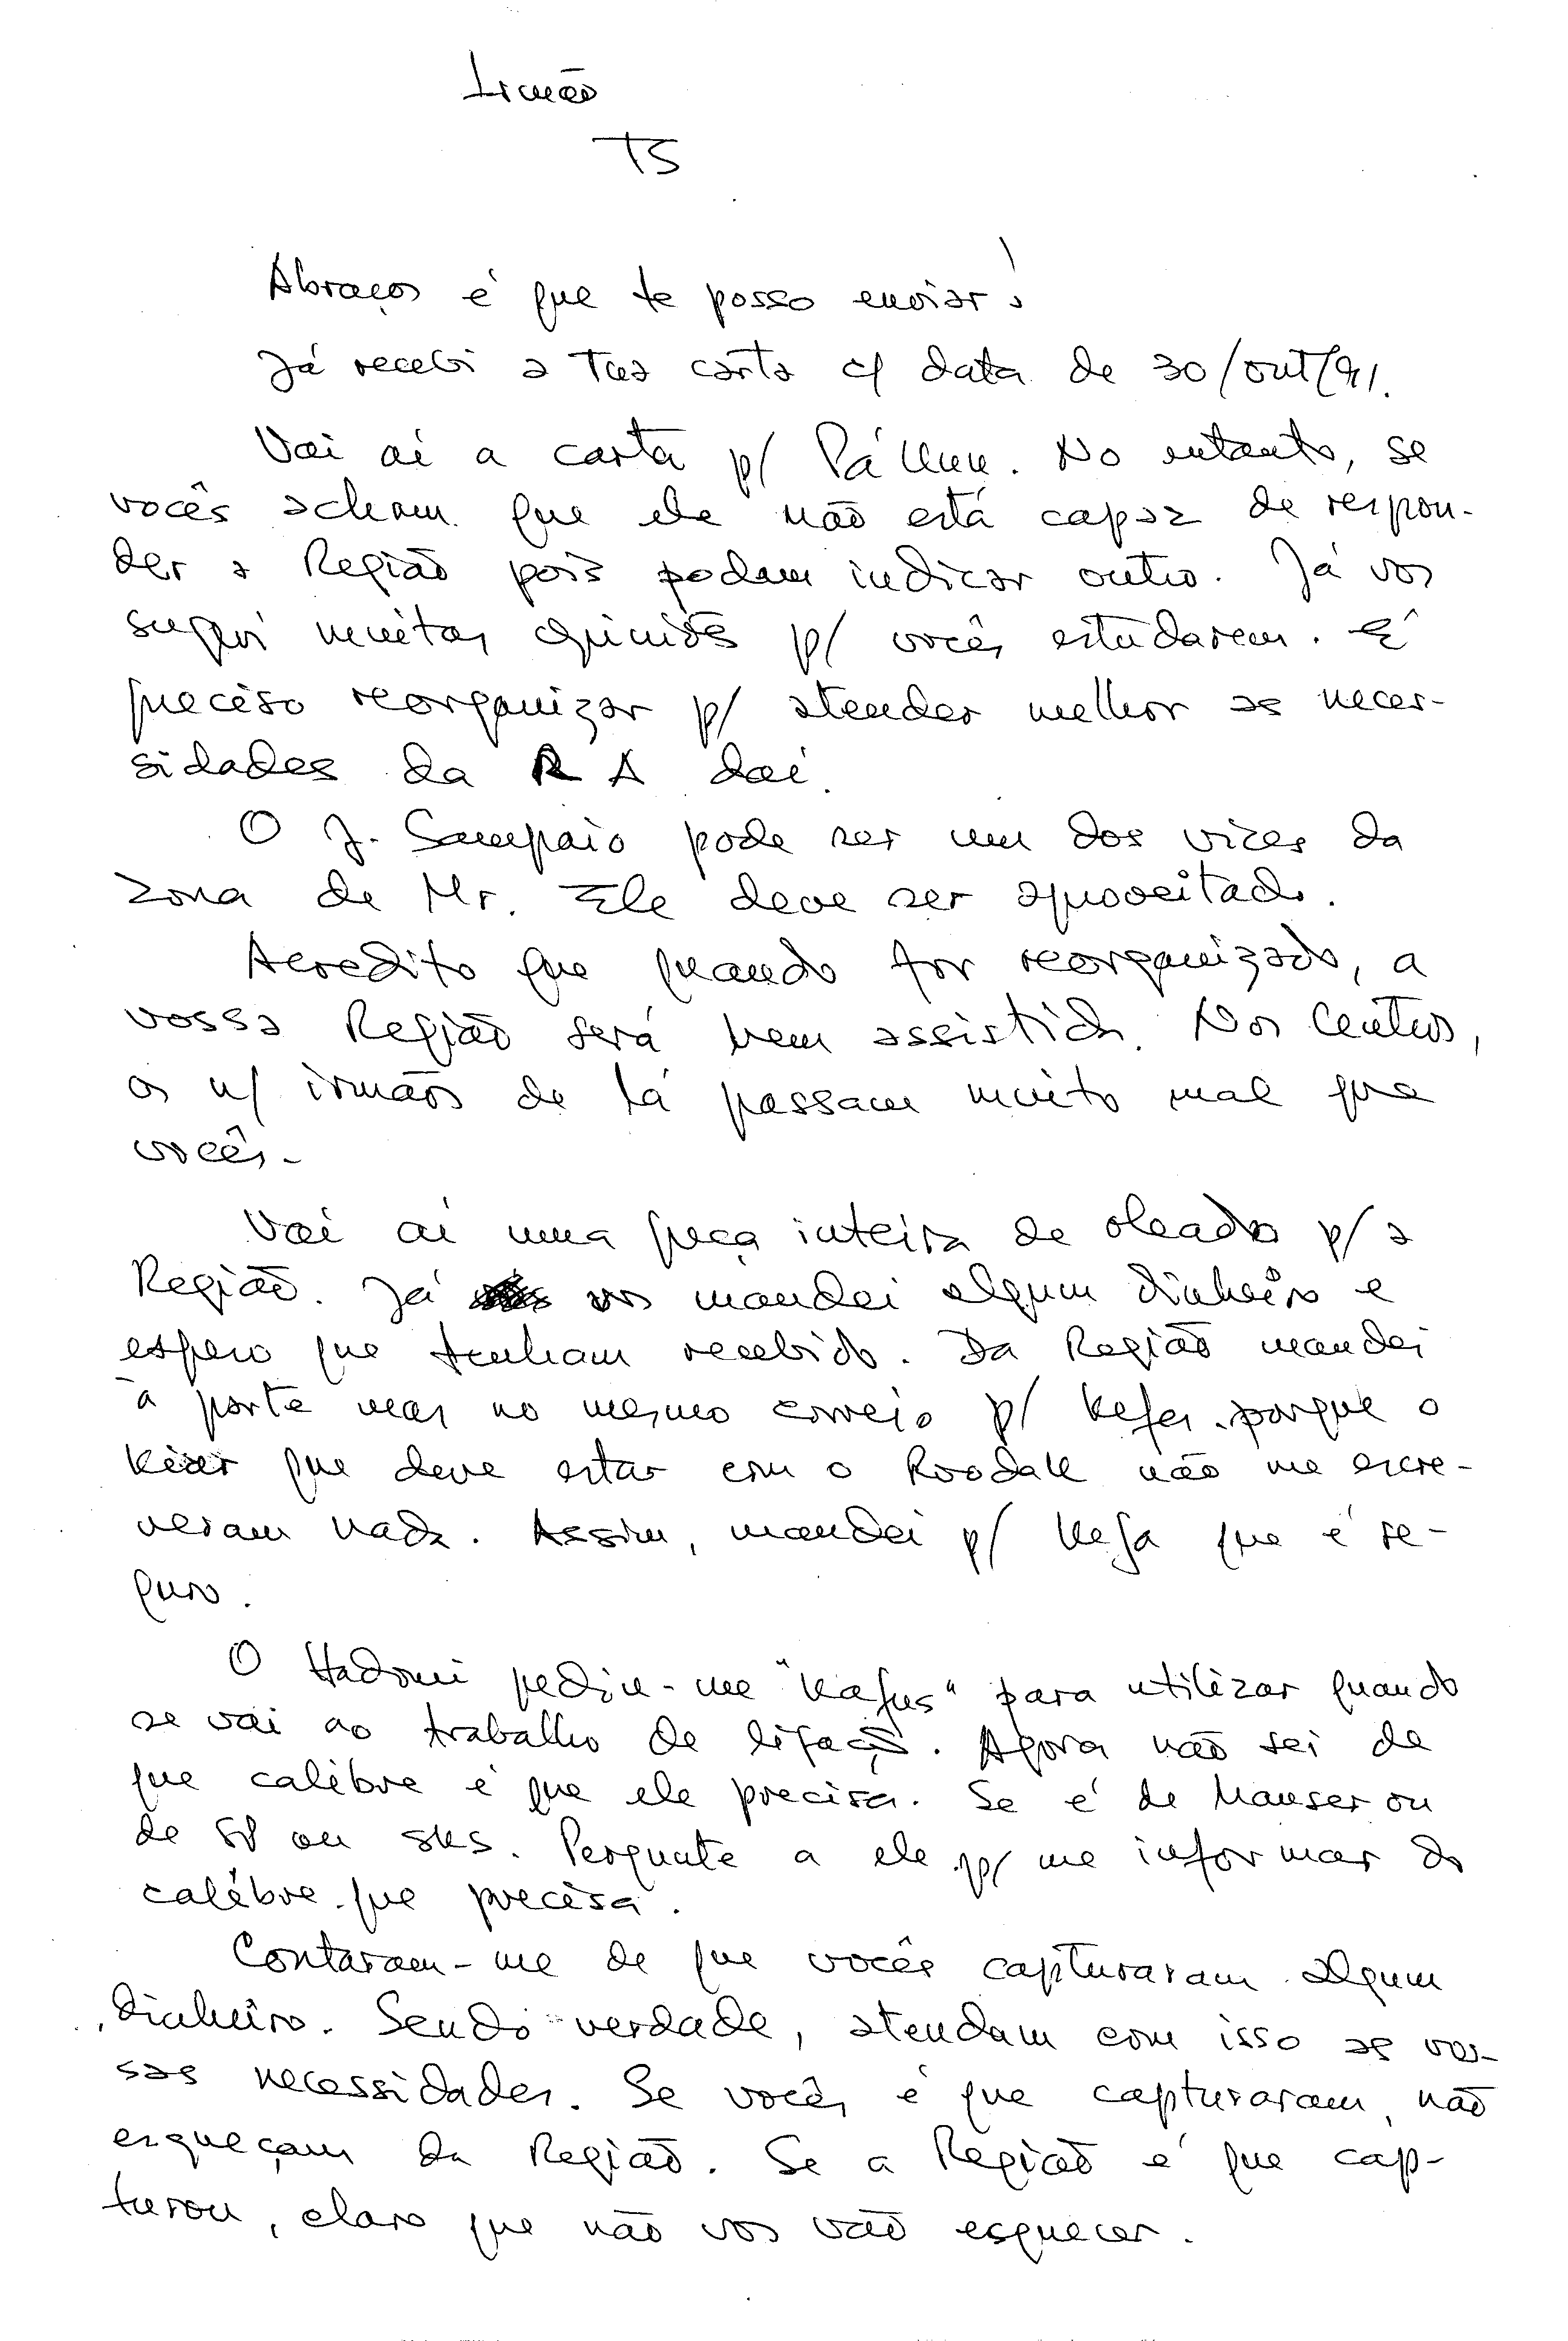 Irmão
TS
Abraços é que te posso enviar!
Já recebi a tua carta c/ data de 30/out/91.
Vai aí a carta p/ No entanto, se
vocês acham que ele não está capaz de respon-
der a Região pois podam indicar outro. Já vos
sugeri muitas opiniõs p/ vocês estudarem. É
preciso reorganizar p/ atender melhor as neces-
sidades da RA daí.
O J. Sampaio pode ser um dos vices da
zona de Mr. Ele deve ser aproveitado.
Acredito que quando for reorganizado, a
vossa Região será bem assistida. Nos Centros,
os n/ irmãos de lá passam muito mal que
vocês.
Vai aí uma peça inteira de oleado p/ a
Região. Já vos mandei algum dinheiro e
espero que tenham recebido. Da Região mandei
à parte mas no mesmo correio p/ Kefas porque o
que deve estar com o não me escre-
veram nada. Assim, mandei p/ Kefa que é se-
guro.
O pediu-me "kafus" para utilizar quando
se vai ao trabalho de ligação. Agora não sei de
que calibre é que ele precisa. Se é de Mauser ou
de ou SKS. Pergunte a ele p/ me informar do
calibre que precisa.
Contaram-me de que vocês capturaram algum
dinheiro. Sendo verdade, atendam com isso as vos-
sas necessidades. Se vocês é que capturaram, não
esqueçam da Região. Se a Região é que cap-
turou, claro que não vos vão esquecer.